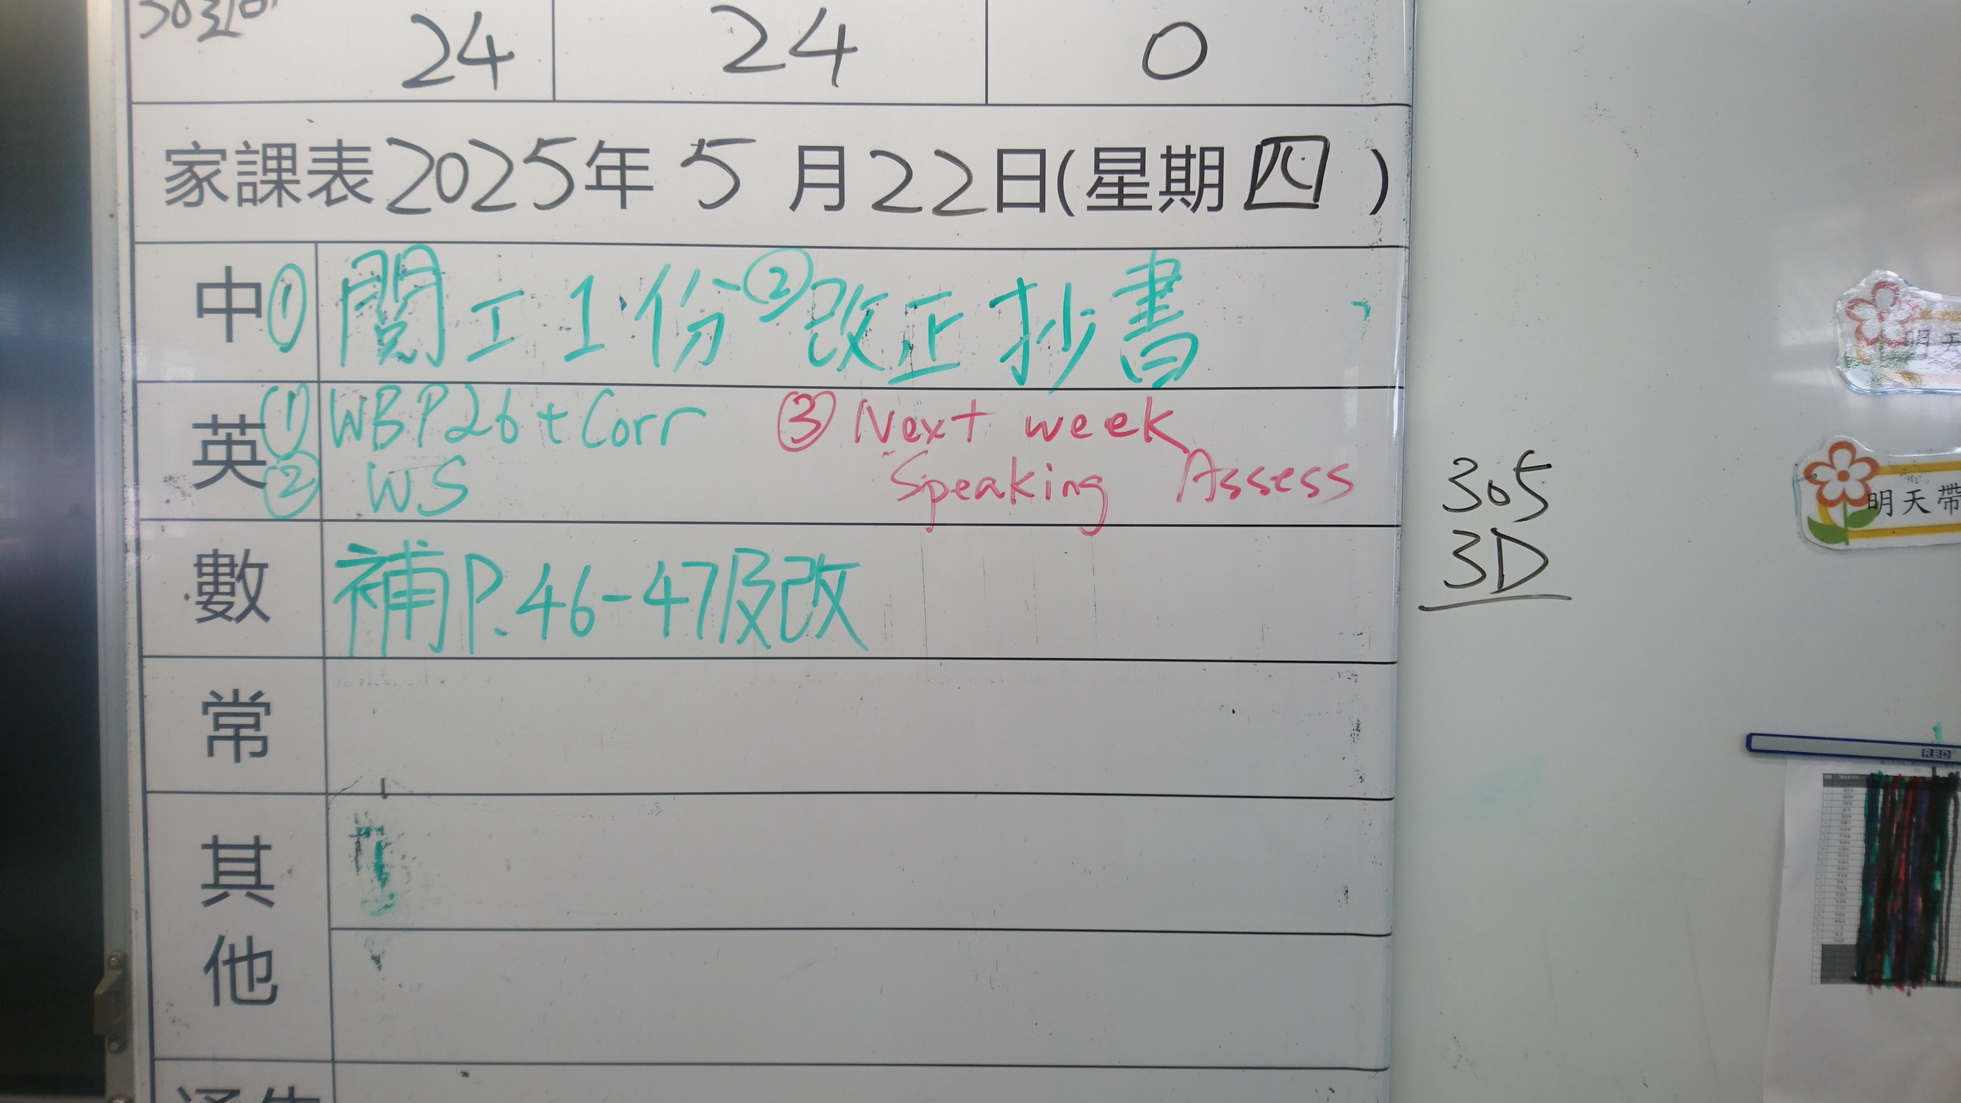 24 24 0
家課表2025年5月22日(星期四)
中 ① 閱工1份 ② 改正抄書
英 ① WBP26+Corr ③ Next week
② WS Speaking Assess
數 補P.46-47及改
常
其
他
305
3D
明天
明天帶
RBD